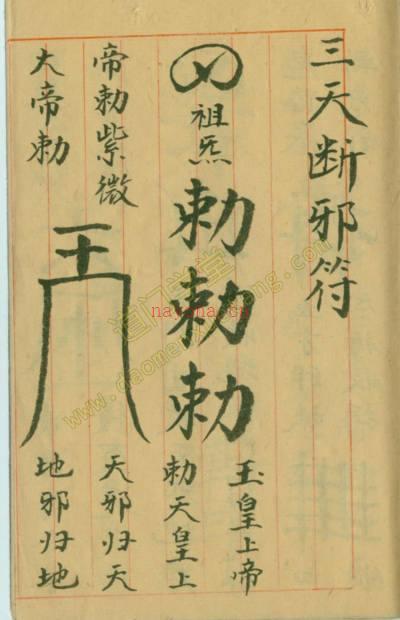 三天断邪符
祖炁
勅勅勅
玉皇上帝
勅天皇上
帝勅紫微
大帝勅
天邪归天
地邪归地
道门学堂
nayona.cn